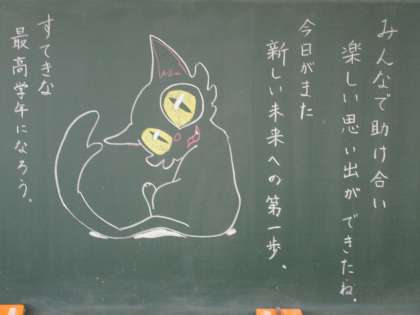 みんなで助け合い
楽しい思い出ができたね。
今日がまた
新しい未来への第一歩、
すてきな
最高学年になろう。